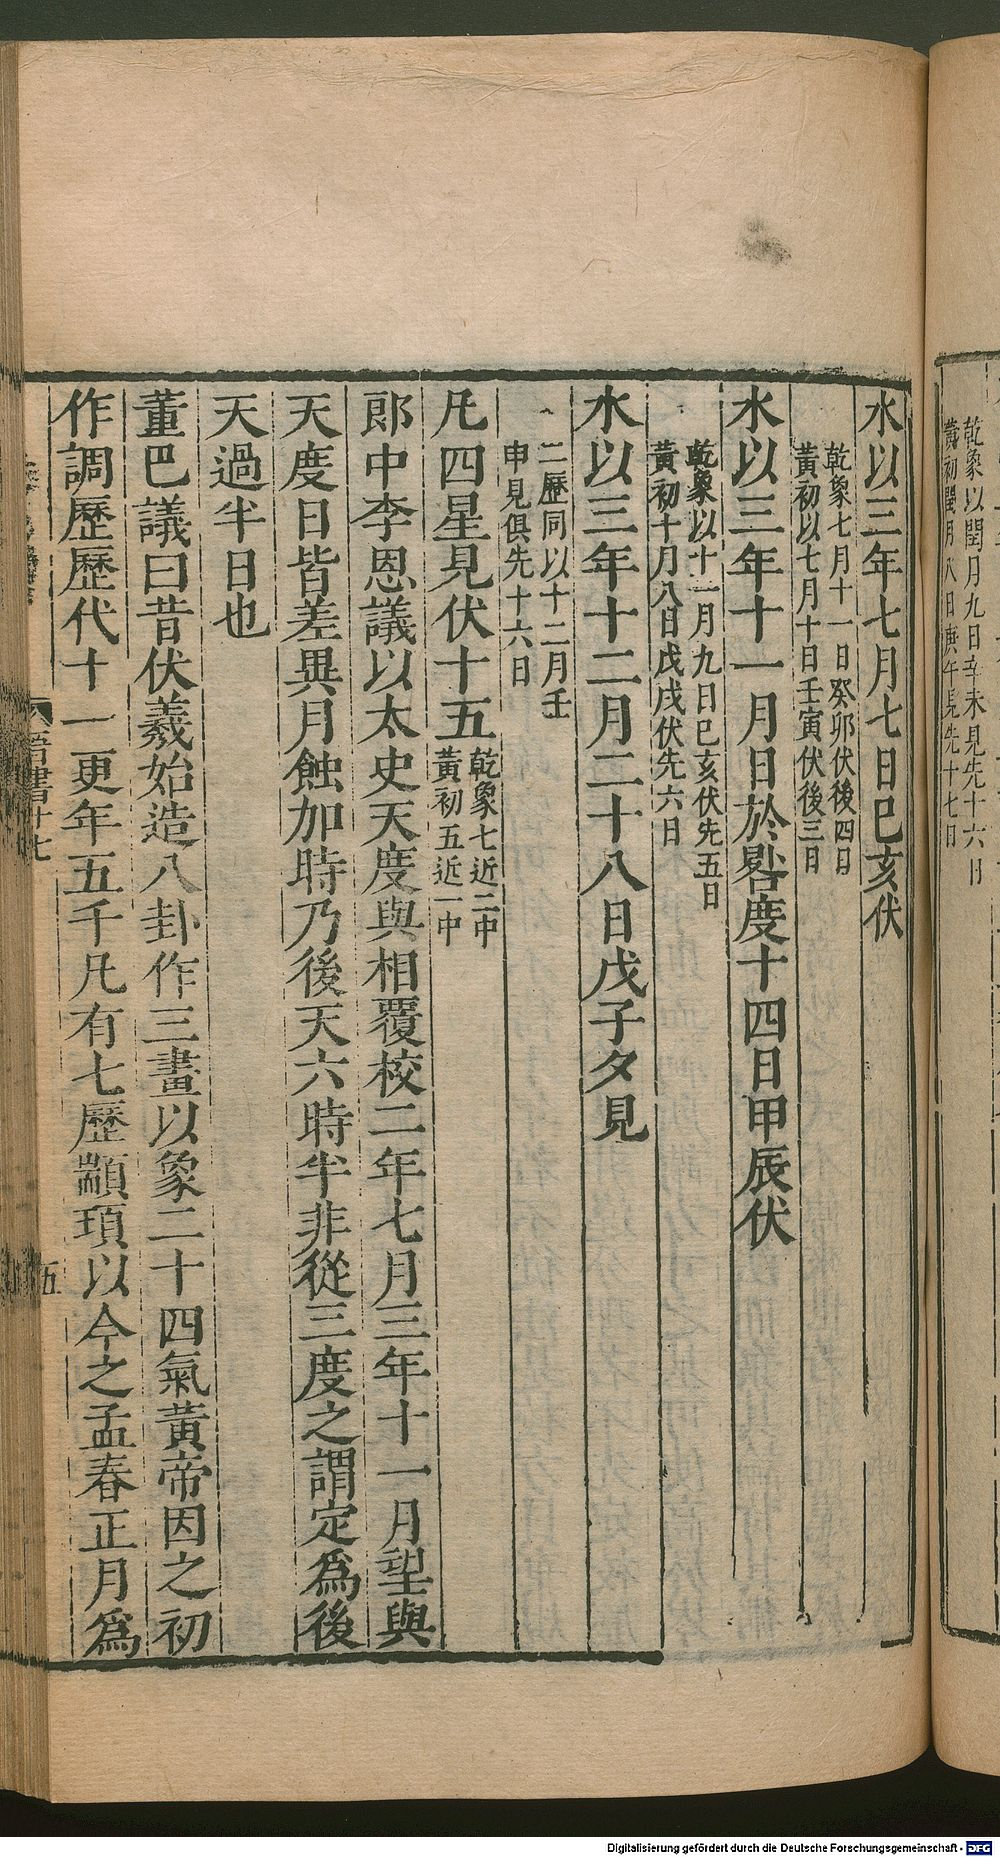 乾象以閏月九日辛未見先十六日
黃初閏月八日庚午見先十七日
水以三年七月七日巳亥伏
乾象七月十一日癸卯伏後四日
黃初以七月十日壬寅伏後三日
水以三年十一月日於晷度十四日甲辰伏
乾象以十一月九日巳亥伏先五日
黃初十月八日戊戌伏先六日
水以三年十二月二十八日戊子夕見
二歷同以十二月壬
申見俱先十六日
凡四星見伏十五
乾象七近二中
黃初五近一中
郎中李恩議以太史天度與相覆校二年七月三年十一月望與
天度日皆差異月蝕加時乃後天六時半非從三度之謂定爲後
天過半日也
董巴議曰昔伏羲始造八卦作三畫以象二十四氣黃帝因之初
作調歷歷代十一更年五千凡有七歷顓頊以今之孟春正月爲
晉書十七
五
Digitalisierung gefördert durch die Deutsche Forschungsgemeinschaft - DFG